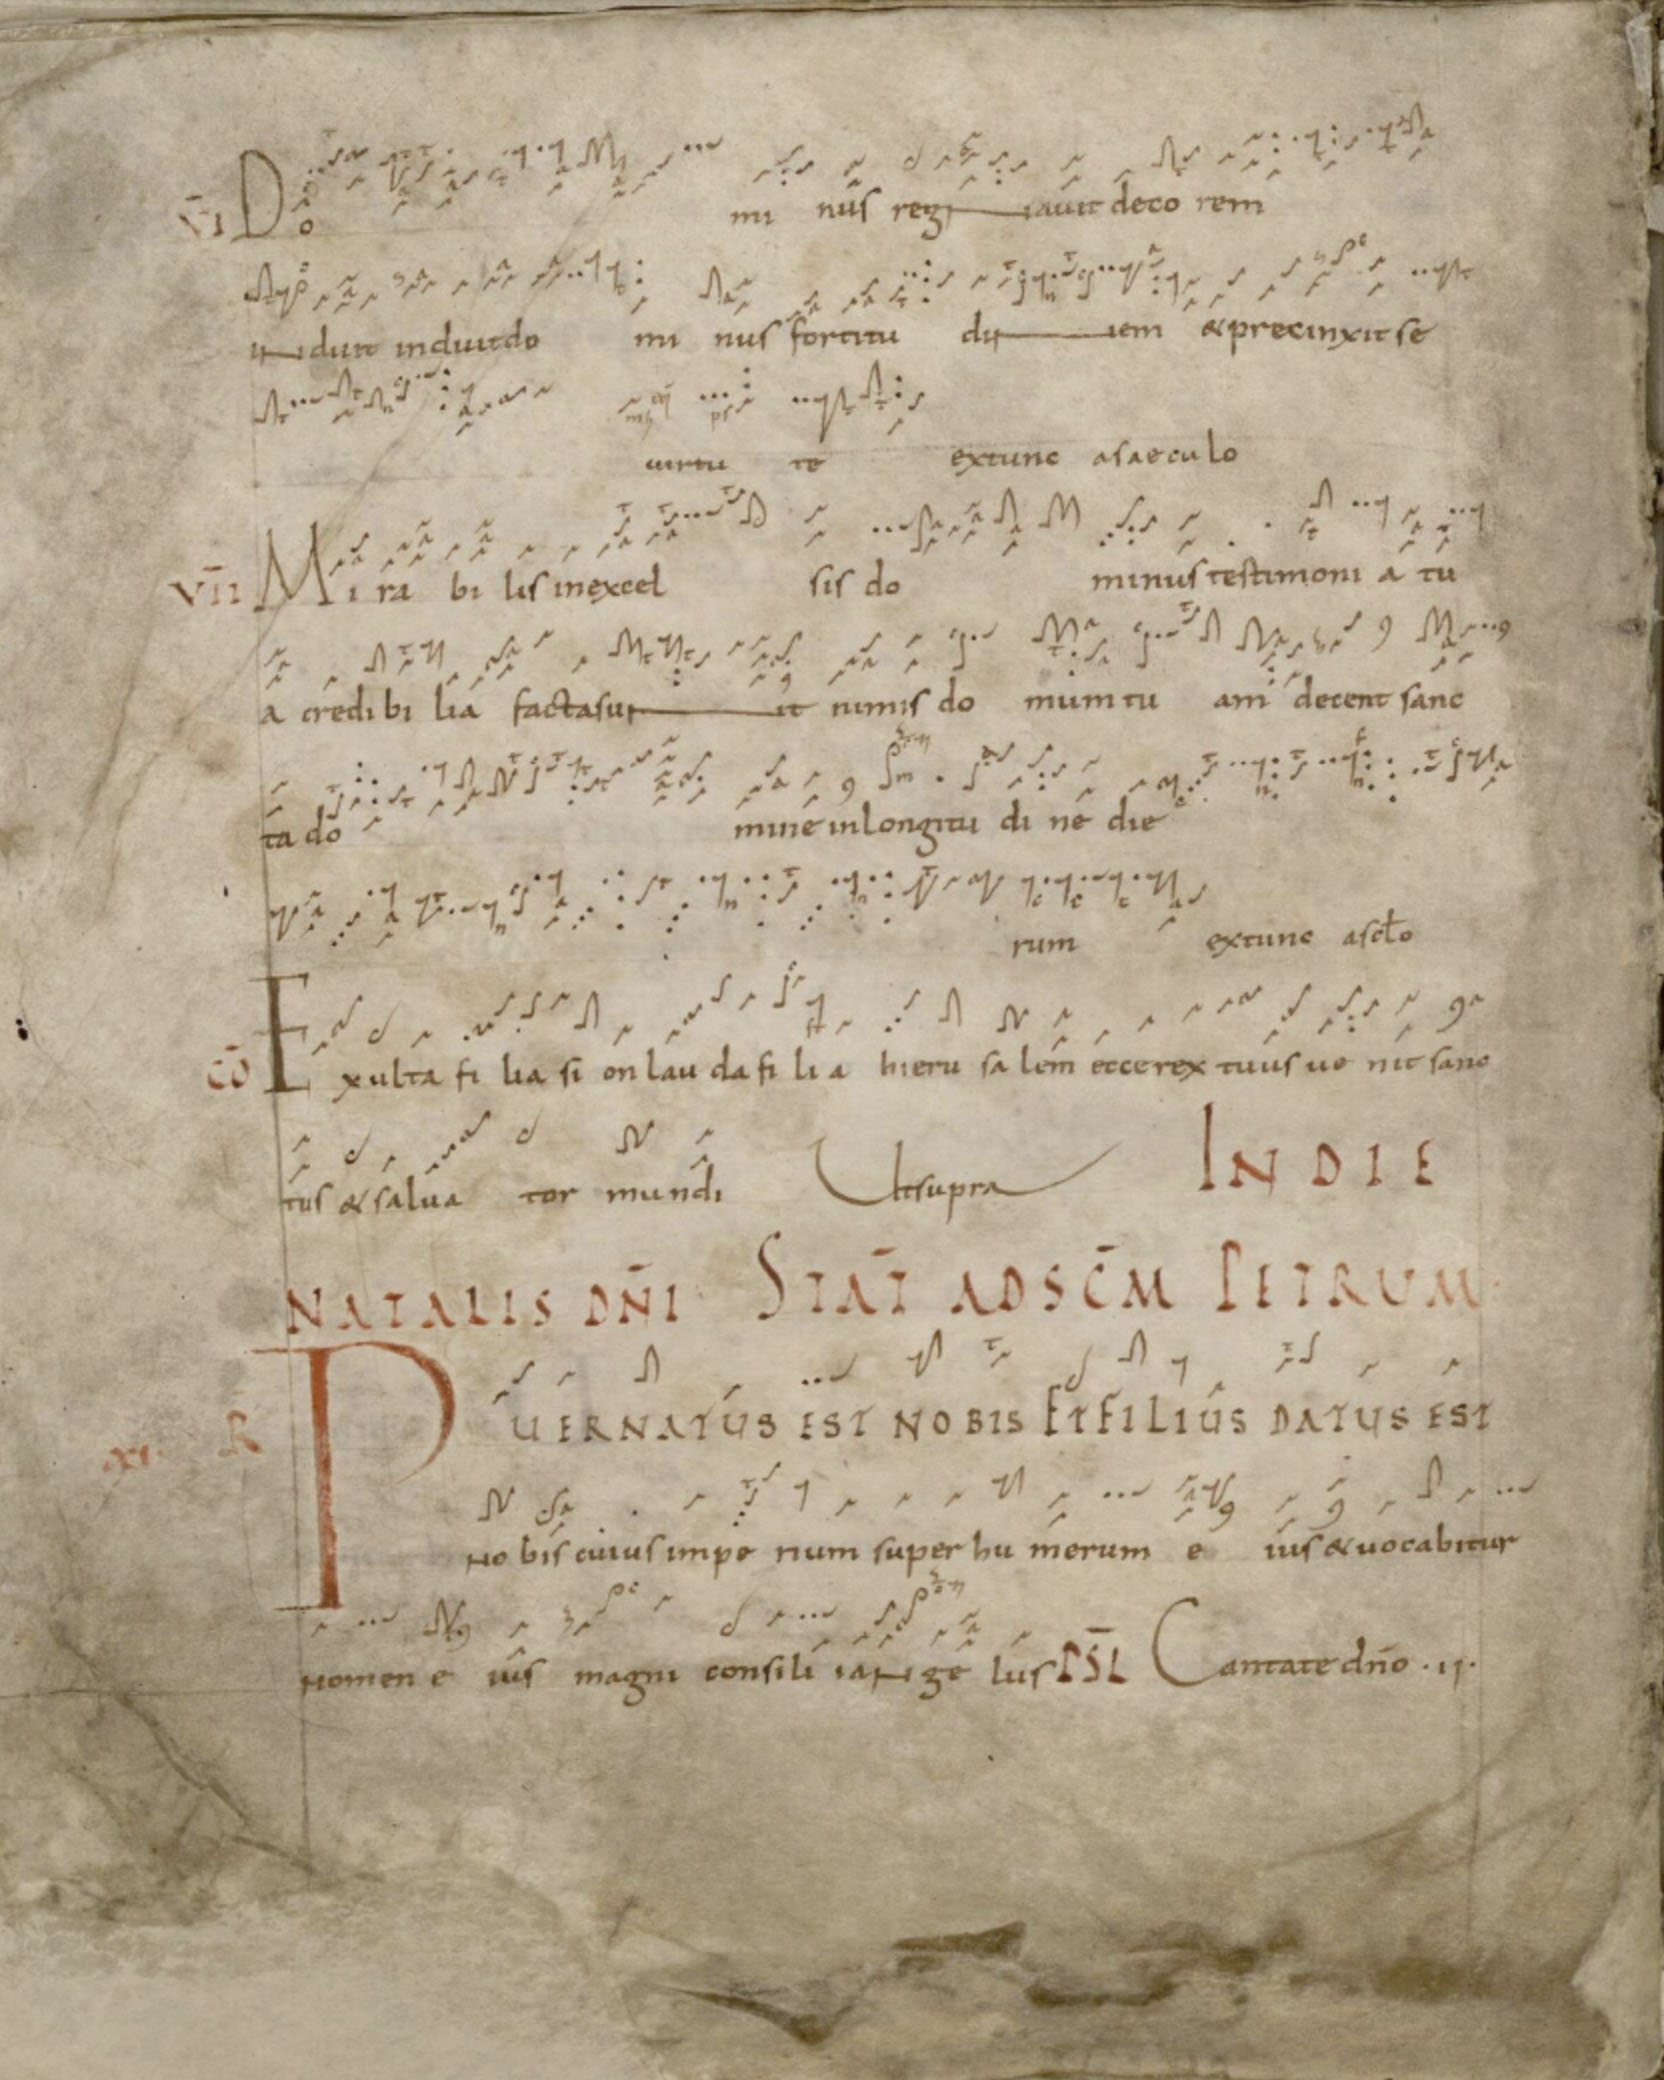 V̄I Do mi nus regnauit deco rem
induit induit do mi nus fortitu di nem & precinxit se
uirtu te extunc asaeculo
V̄II Mi ra bi lis inexcel sis do minus testimoni a tu
a credi bi lia factasunt nimis do mum tu am decent sanc
ta do mine inlongitu di ne die
rum extunc asclo
CŌ Exulta fi lia si on lau da fi li a hieru sa lem ecce rex tuus ue nit sanc
tus & salua tor mundi Utsupra IN DIE
NATALIS DN̄I STAT̄ AD SC̄M PETRUM
R̄ PUER NATUS EST NOBIS ET FILIUS DATUS EST
no bis cuius impe rium super hu merum e ius & uocabitur
nomen e ius magni consili i ange lus PS̄L Cantate dn̄o . ii .